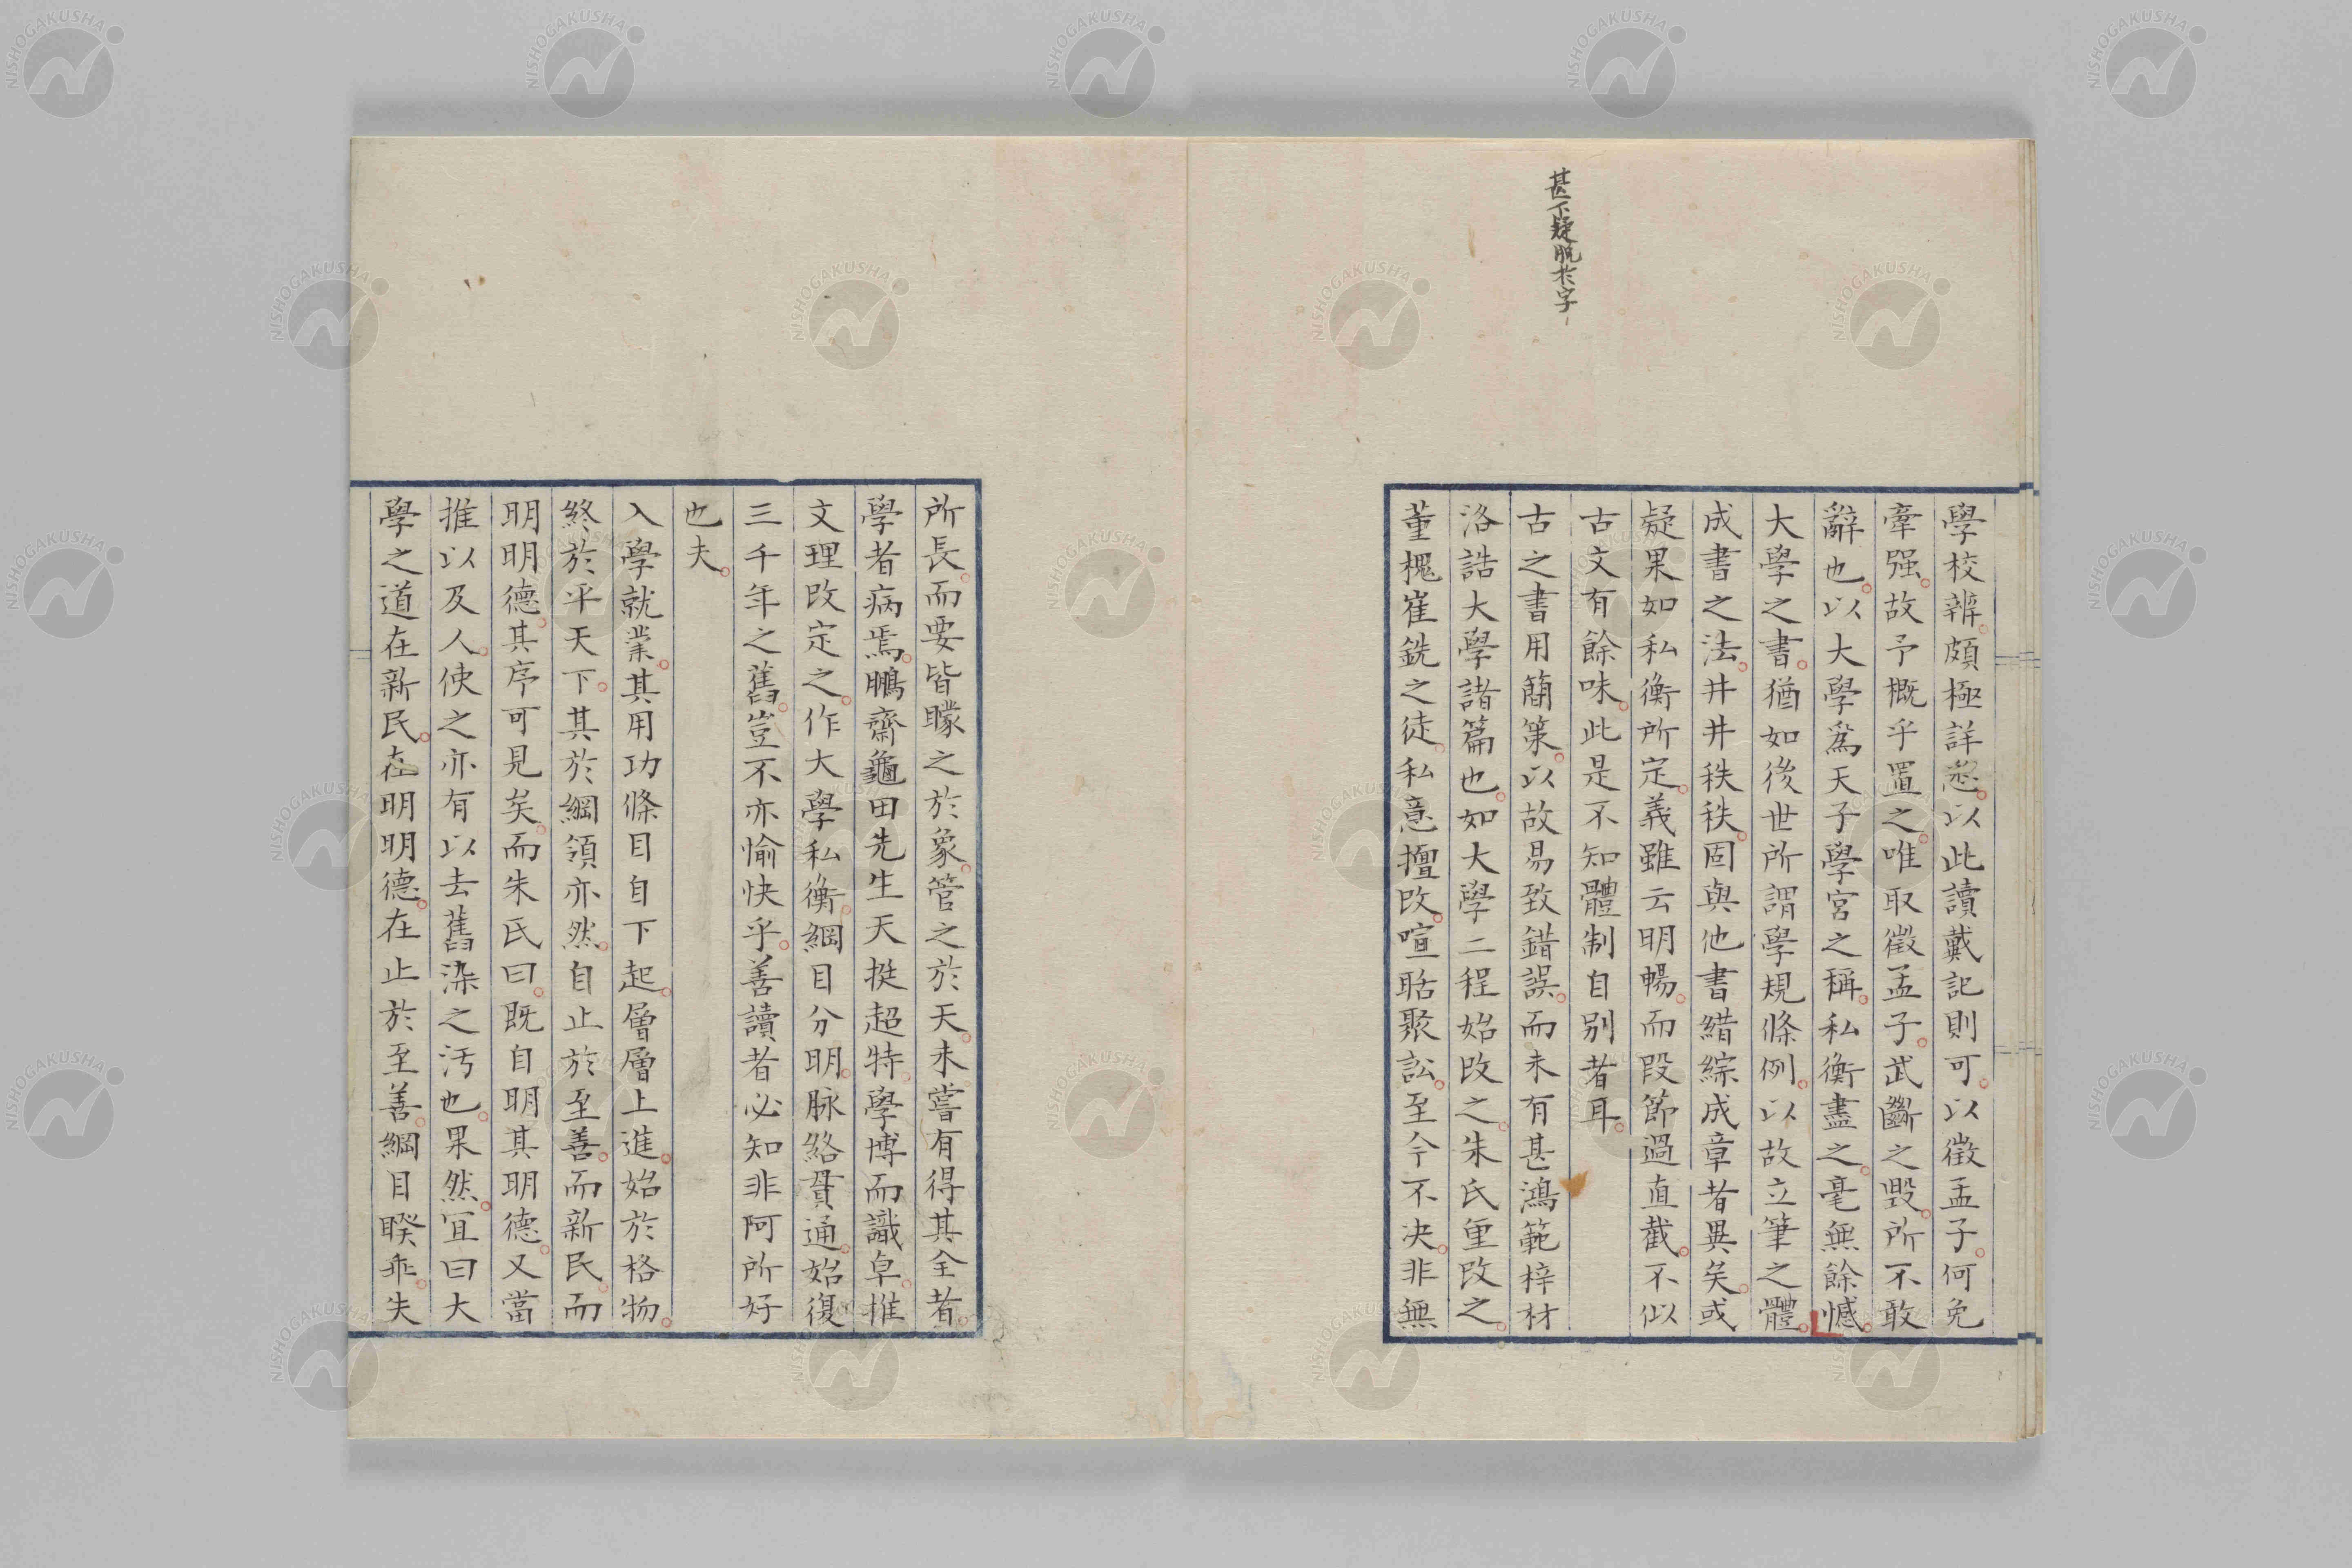 甚下疑脫於字
學校辨頗極詳悉以此讀戴記則可以徵孟子何免
牽强故予概乎置之唯取徵孟子武斷之毀所不敢
辭也以大學爲天子學宮之稱私衡盡之毫無餘憾
大學之書猶如後世所謂學規條例以故立筆之體
成書之法井井秩秩固與他書縉綜成章者異矣或
疑果如私衡所定義雖云明暢而段節過直截不似
古文有餘味此是不知體制自別者耳
古之書用簡策以故易致錯誤而未有甚鴻範梓材
洛誥大學諸篇也如大學二程始改之朱氏重改之
董槐崔銑之徒私意擅改喧聒聚訟至今不决非無
所長而要皆矇之於象管之於天未嘗有得其全者
學者病焉鵬齋龜田先生天挺超特學博而識卓推
文理改定之作大學私衡綱目分明脉絡貫通始復
三千年之舊豈不亦愉快乎善讀者必知非阿所好
也夫
入學就業其用功條目自下起層層上進始於格物
終於平天下其於綱領亦然自止於至善而新民而
明明德其序可見矣而朱氏曰既自明其明德又當
推以及人使之亦有以去舊染之汚也果然宜曰大
學之道在新民在明明德在止於至善綱目睽乖失
NISHOGAKUSHA